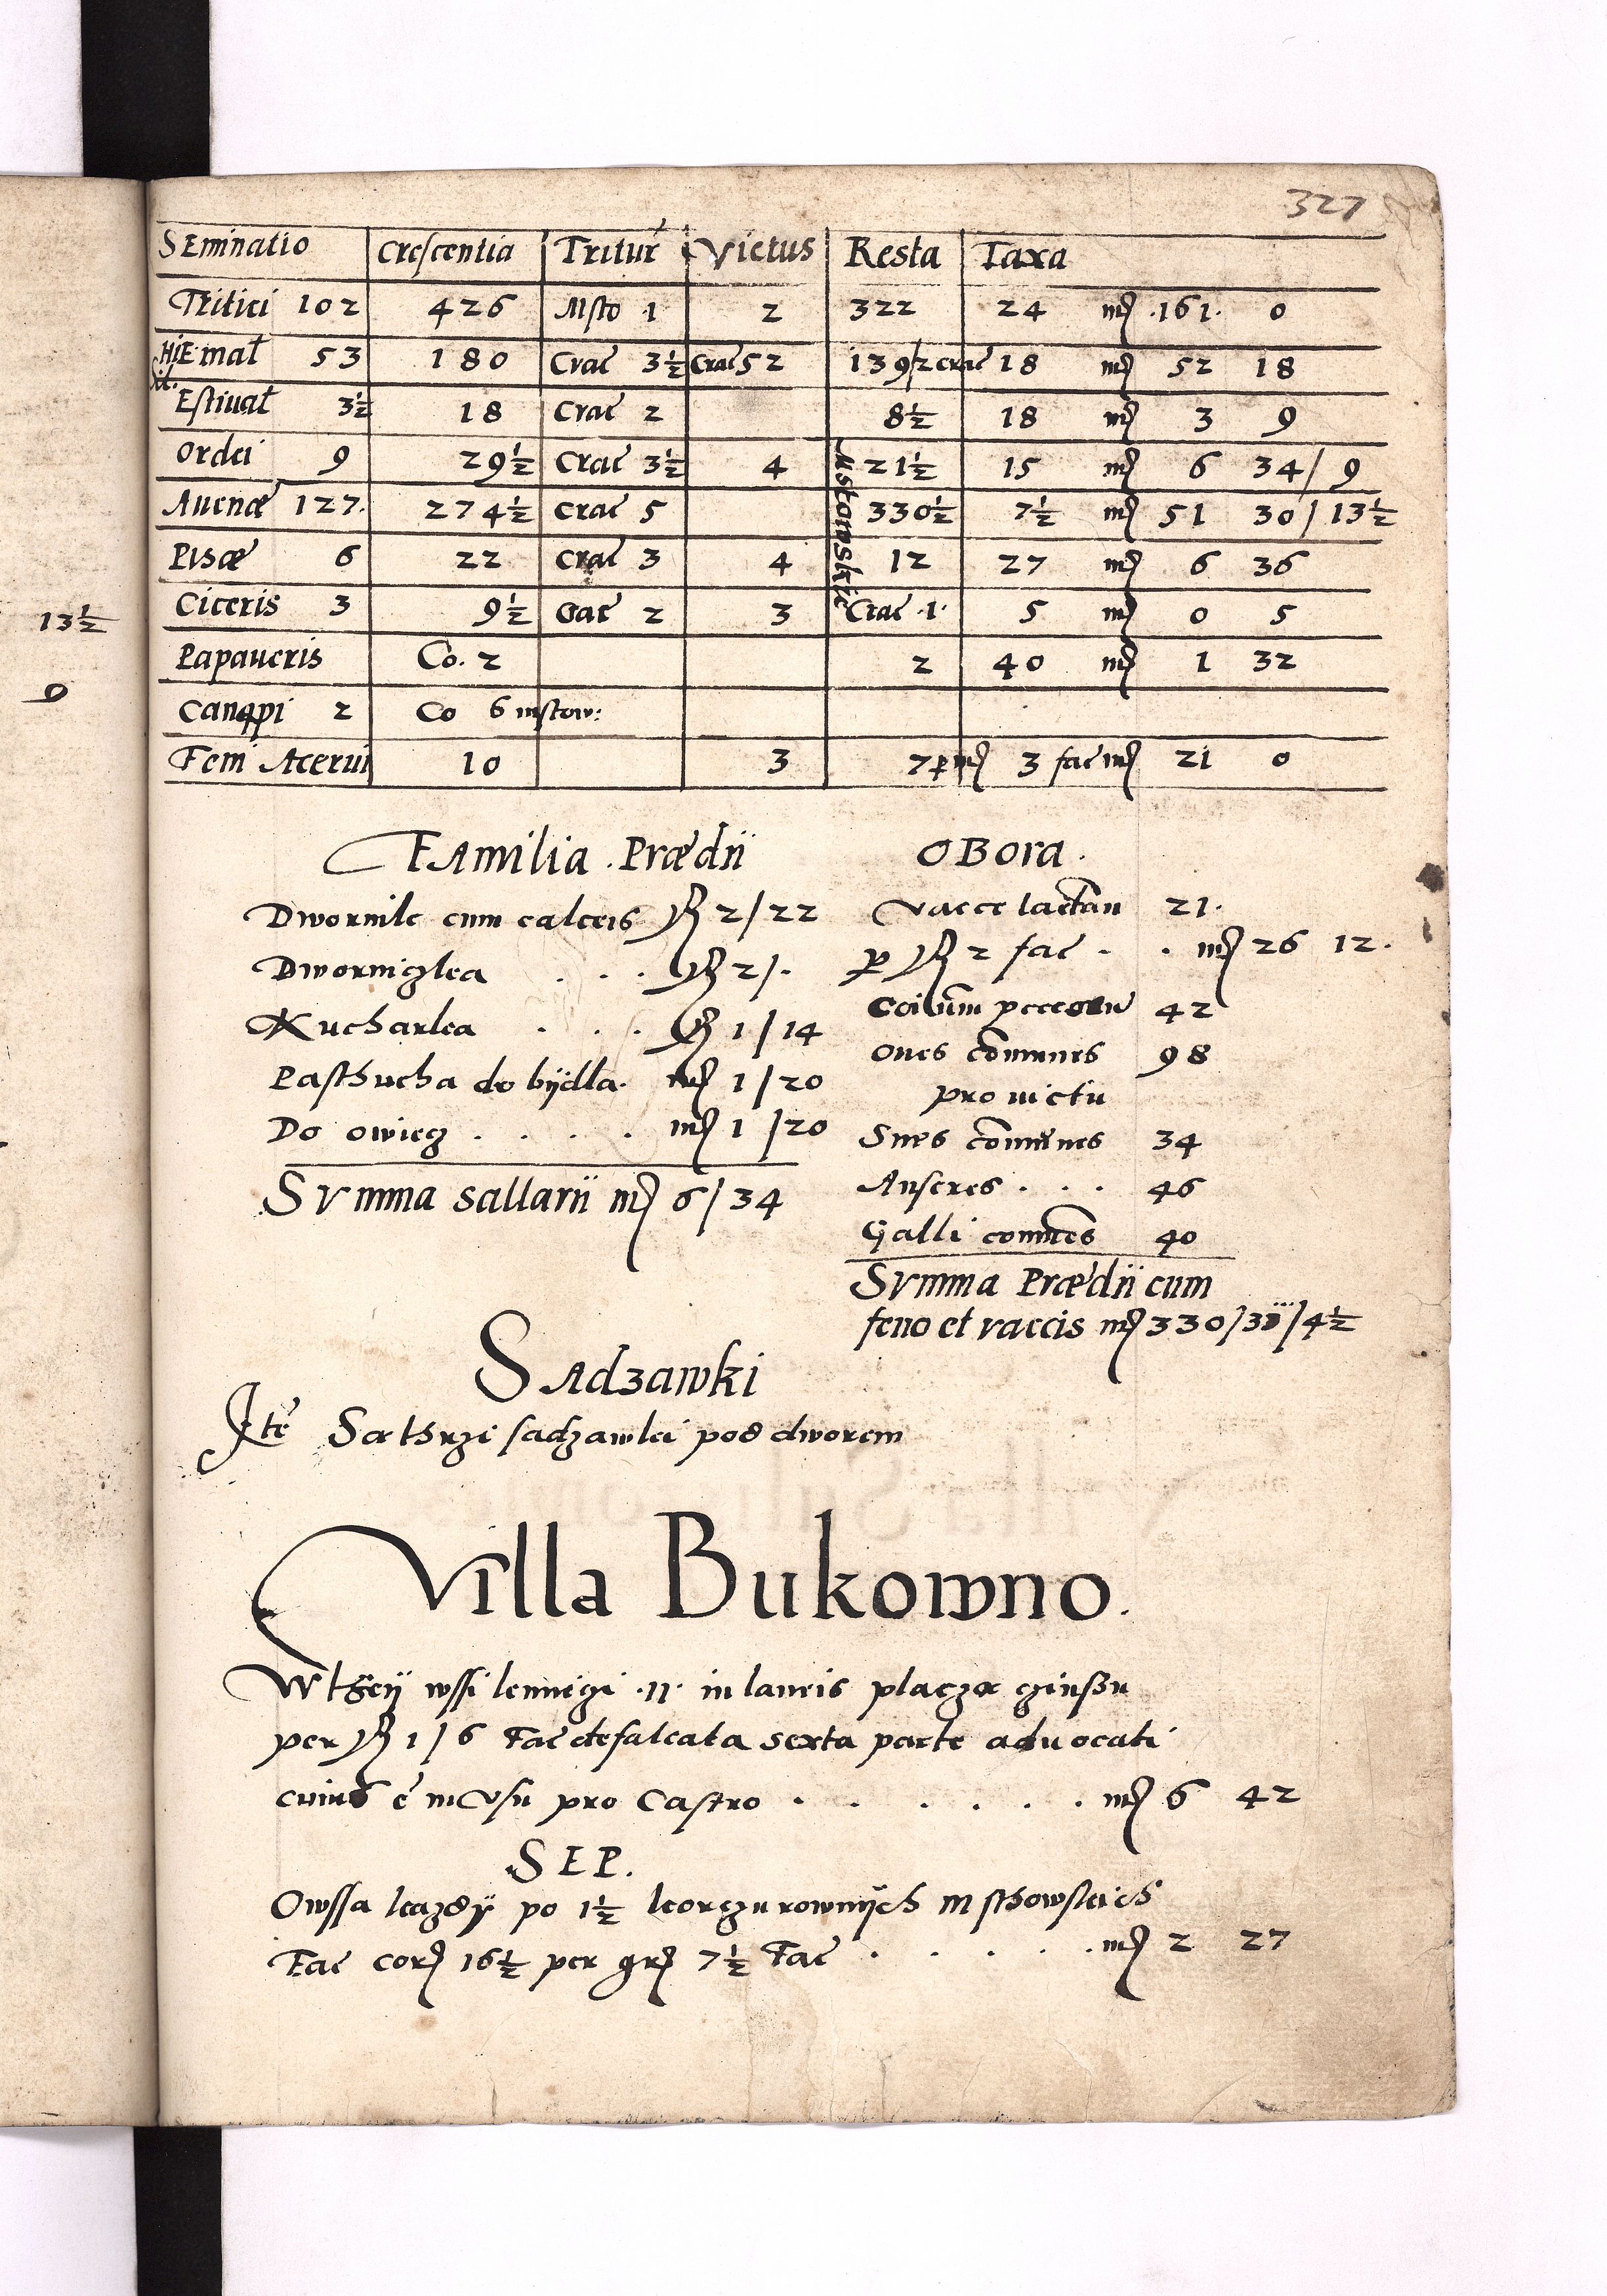 327
SEminatio Crescentia Tritur Victus Resta Taxa
Tritici 102 426 Msto 1 2 322 24 mр 161 0
HiEmal 53 180 Crac 3½ Crac 52 139/2 crac 18 m 52 18
Sil. Estiual 3½ 18 Crac 2 8½ 18 m 3 9
Ordei 9 29½ Crac 3½ 4 21½ 15 m 6 34/9
Auenæ 127. 274½ Crac 5 330½ 7½ m 51 30/13½
Pisæ 6 22 Crac 3 4 12 27 m 6 36
Ciceris 3 9½ Crac 2 3 Crac 1 5 m 0 5
Mstowskie
Papaueris Co. 2 2 40 m 1 32
Canapi 2 Co 6 mstow:
Feni Acerui 10 3 7 p m 3 fac m 21 0
13½
9
FAmilia Prædii
Dwornik cum calceis 2/22
Dworniczka . . . 2/.
Kucharka . . . 1/14
Pasthucha do bÿdla. m 1/20
Do owiecz . . . . m 1/20
SVmma sallarii m 6/34
OBora.
Vacce lactan 21.
p 2 fac . . m 26 12.
Coium pecorũ 42
Oues comunes 98
pro uictu
Sues comunes 34
Anseres . . . 46
Galli comunes 40
SVmma Prædii cum
feno et vaccis m 330/38/4½
SAdzawki
Ite Scthrzi sadzawki pod dworem
Villa Bukowno.
W theÿ wssi kmiegi .11. in laneis placza czinszu
per 1/6 Fac defalcata sexta parte aduocati
cuius ē in Vsu pro Castro . . . . . . m 6 42
SEP.
Owssa kazdÿ po 1½ korczu rownÿch Msthowskich
Fac cor 16½ per gr 7½ Fac . . . . . m 2 27